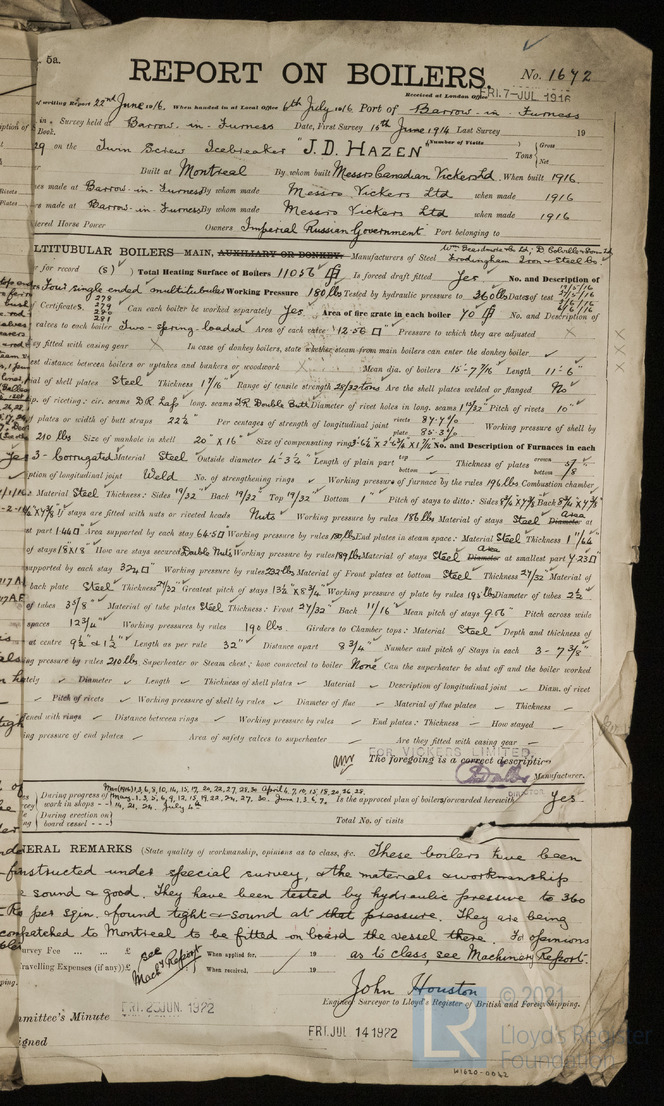 5a.
REPORT ON BOILERS.
No. 1672
Received at London Office FRI. 7-JUL 1916
of writing Report 22nd June 1916. When handed in at Local Office 6th July 1916 Port of Barrow-in-Furness
in Survey held at Barrow-in-Furness Date, First Survey 10th June 1914 Last Survey 19
Book. Number of Visits
29 on the Twin Screw Icebreaker "J. D. HAZEN" Tons Gross Net
Built at Montreal By whom built Messrs Canadian Vickers Ltd. When built 1916.
es made at Barrow-in-Furness By whom made Messrs Vickers Ltd when made 1916
rs made at Barrow-in-Furness By whom made Messrs Vickers Ltd when made 1916
tered Horse Power Owners Imperial Russian Government Port belonging to
LTITUBULAR BOILERS — MAIN, AUXILIARY OR DONKEY. Manufacturers of Steel Wm Beardmore & Co Ld; D. Colville & Sons Ld Frodingham Iron & Steel Co.
for record (S) Total Heating Surface of Boilers 11056 Is forced draft fitted Yes No. and Description of
Four single ended multitubular Working Pressure 180 lbs Tested by hydraulic pressure to 360 lbs Date of test
Certificate 278 279 280 281 Can each boiler be worked separately Yes Area of fire grate in each boiler 70 No. and Description of
valves to each boiler Two-spring-loaded Area of each valve 12.56 □" Pressure to which they are adjusted
ey fitted with easing gear In case of donkey boilers, state whether steam from main boilers can enter the donkey boiler
est distance between boilers or uptakes and bunkers or woodwork Mean dia. of boilers 15'-7 7/16" Length 11'-6"
ial of shell plates Steel Thickness 1 7/16" Range of tensile strength 28/32 tons Are the shell plates welded or flanged No
ip. of riveting: cir. seams D.R. Lap long. seams T.R. Double Butt Diameter of rivet holes in long. seams 1 15/32" Pitch of rivets 10"
of plates or width of butt straps 22 1/4" Per centages of strength of longitudinal joint rivets 87.7% plate 85.3% Working pressure of shell by
210 lbs Size of manhole in shell 20" x 16" Size of compensating ring No. and Description of Furnaces in each
3 - Corrugated Material Steel Outside diameter 4'-3 3/4" Length of plain part top bottom Thickness of plates crown bottom 5/8
iption of longitudinal joint Weld No. of strengthening rings Working pressure of furnace by the rules 196 lbs Combustion chamber
Material Steel Thickness: Sides 19/32" Back 19/32" Top 19/32" Bottom 1" Pitch of stays to ditto: Sides Back
If stays are fitted with nuts or riveted heads Nuts Working pressure by rules 186 lbs Material of stays Steel Area Diameter at
est part 1.44 □" Area supported by each stay 64.5 □" Working pressure by rules End plates in steam space: Material Steel Thickness
of stays 18 x 18" How are stays secured Double Nuts Working pressure by rules 189 lbs Material of stays Steel Area Diameter at smallest part 7.23 □"
upported by each stay 324 □" Working pressure by rules 232 lbs Material of Front plates at bottom Steel Thickness 27/32" Material of
back plate Steel Thickness 27/32" Greatest pitch of stays Working pressure of plate by rules 195 lbs Diameter of tubes 2 1/2"
of tubes 3 5/8" Material of tube plates Steel Thickness: Front 27/32" Back 11/16" Mean pitch of stays 9.06" Pitch across wide
spaces 12 3/4" Working pressures by rules 190 lbs. Girders to Chamber tops: Material Steel Depth and thickness of
at centre 9 1/2" & 1 1/2" Length as per rule 32" Distance apart 8 3/4" Number and pitch of Stays in each 3 - 7 3/8"
ng pressure by rules 210 lbs Superheater or Steam chest; how connected to boiler None Can the superheater be shut off and the boiler worked
tely Diameter Length Thickness of shell plates Material Description of longitudinal joint Diam. of rivet
Pitch of rivets Working pressure of shell by rules Diameter of flue Material of flue plates Thickness
ened with rings Distance between rings Working pressure by rules End plates: Thickness How stayed
ing pressure of end plates Area of safety valves to superheater Are they fitted with easing gear
FOR VICKERS LIMITED.
The foregoing is a correct description
Manufacturer.
DIRECTOR
During progress of work in shops - -
14, 21, 24. July 4th
Is the approved plan of boilers forwarded herewith Yes
During erection on board vessel - - -
Total No. of visits
NERAL REMARKS (State quality of workmanship, opinions as to class, &c. These boilers have been
nstructed under special survey, & the materials & workmanship
e sound & good. They have been tested by hydraulic pressure to 360
lbs per sq in. & found tight & sound at that pressure. They are being
competched to Montreal to be fitted on board the vessel there. For opinions
as to class, see Machinery Report.
urvey Fee ... ... £ When applied for, 19
see Machy Report
ravelling Expenses (if any) £ When received, 19
John Houston
Engineer Surveyor to Lloyd's Register of British and Foreign Shipping.
mmittee's Minute FRI. 23 JUN. 1922
FRI. JUL 14 1922
igned
© 2021
LR
Lloyd's Register
Foundation
W1620-0042